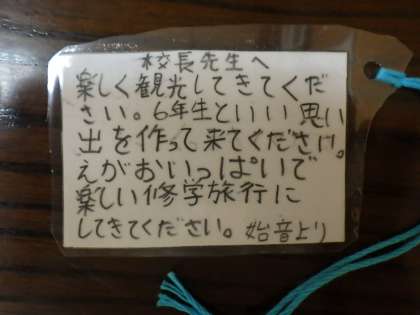 校長先生へ
楽しく観光してきてくだ
さい。6年生といい思い
出を作って来てください。
えがおいっぱいで
楽しい修学旅行に
してきてください。始音より